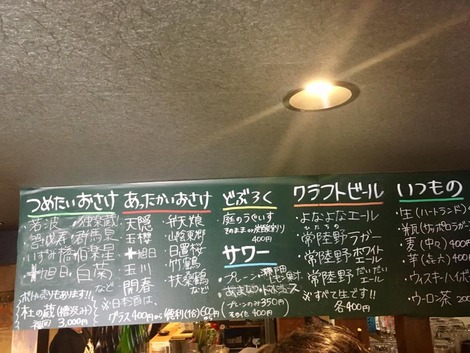 つめたいおさけ
・若波 ・独楽蔵
・群馬泉
・いずみ橋
・十旭日
・白菊
など
杜の蔵(槽汲み)
3,000円
あったかいおさけ
・天隠 ・弁天娘
・玉櫻
・十旭日 ・日置桜
・玉川 ・竹鶴
・開春 ・扶桑鶴
など
※日本酒は
グラス400円から 徳利(1合)600円から
どぶろく
・庭のうぐいす
400円
サワー
・プレーン
(プレーンのみ350円)
400円
クラフトビール
・よなよなエール
・常陸野ラガー
・常陸野ホワイトエール
・常陸野だいだいエール
※すべて生です!!
各400円
いつもの
・生(ハートランド)
・麦(中々)400円
・芋(㐂六)400円
・ウィスキーハイボ
・ウーロン茶